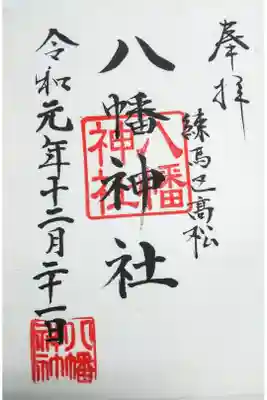 奉拝
練馬区高松
八幡神社
八幡神社
令和元年十二月二十一日
八幡神社